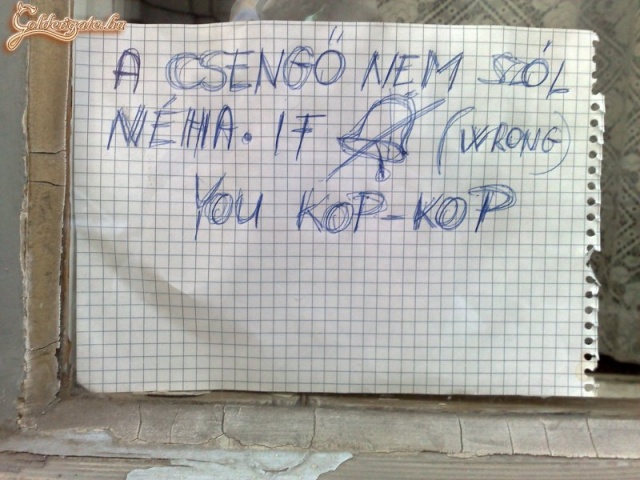 Goldengate.hu
A CSENGŐ NEM SZÓL
NÉHA. IF (WRONG)
YOU KOP-KOP